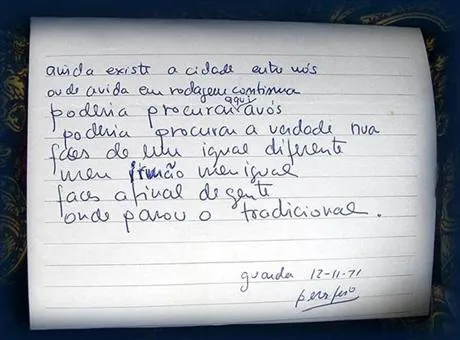 ainda existe a cidade entre nós
onde a vida em rodagem continua
poderia procurar aqui avós
poderia procurar a verdade nua
faces de um igual diferente
meu irmão meu igual
faces afinal de gente
onde parou o tradicional.
guarda 12-11-71